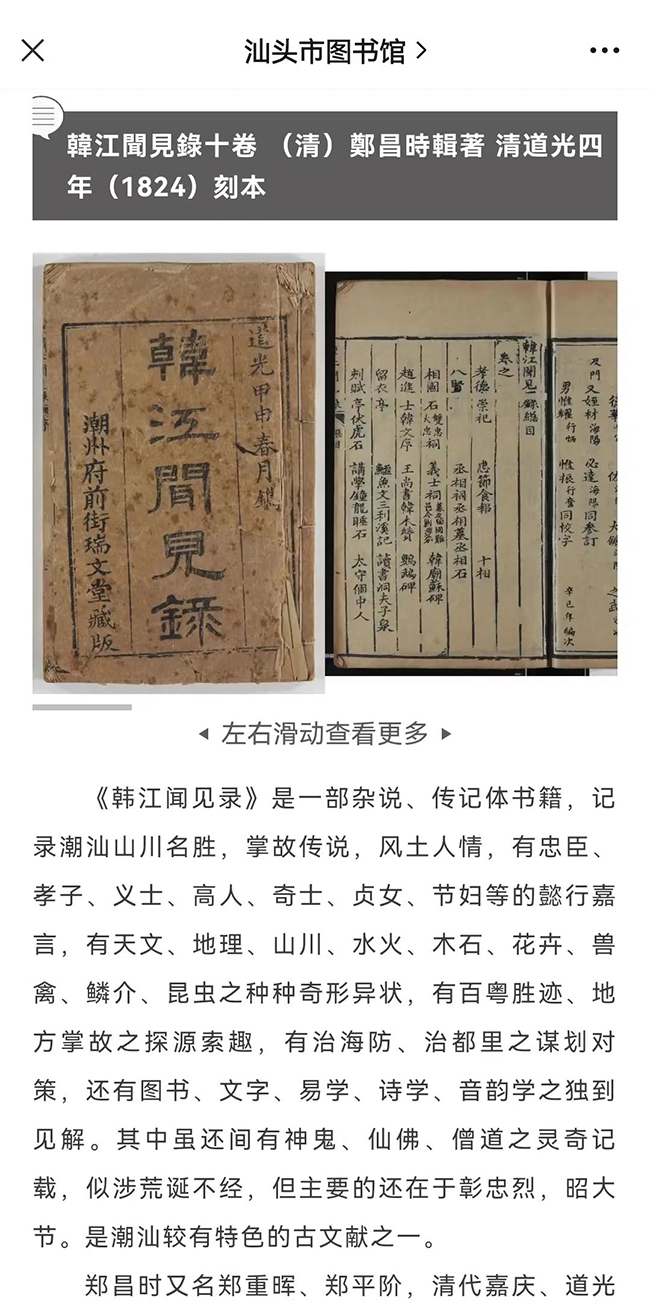 汕头市图书馆
韓江聞見錄十卷 （清）鄭昌時輯著 清道光四
年（1824）刻本
道光甲申春月鐫
韓江聞見錄
潮州府前街瑞文堂藏版
韓江聞見錄總目
卷之一
孝德崇祀 忠節食報 十相
八賢 丞相祠丞相墓丞相石
相國石 雙忠祠 大忠祠 義士祠 韓廟蘇碑
趙進士韓文序 王尚書韓木贊 鸚鵡碑
留衣亭 鱷魚文三利溪記 讀書洞夫子泉
刺賦亭伏虎石 講學鐘龍睡石 太守個中人
及門
又姪材海陽 必達海陽同參訂
男惟糧行恬 惟根行奮同校字
辛巳年編次
左右滑动查看更多
《韩江闻见录》是一部杂说、传记体书籍，记
录潮汕山川名胜，掌故传说，风土人情，有忠臣、
孝子、义士、高人、奇士、贞女、节妇等的懿行嘉
言，有天文、地理、山川、水火、木石、花卉、兽
禽、鳞介、昆虫之种种奇形异状，有百粤胜迹、地
方掌故之探源索趣，有治海防、治都里之谋划对
策，还有图书、文字、易学、诗学、音韵学之独到
见解。其中虽还间有神鬼、仙佛、僧道之灵奇记
载，似涉荒诞不经，但主要的还在于彰忠烈，昭大
节。是潮汕较有特色的古文献之一。
郑昌时又名郑重晖、郑平阶，清代嘉庆、道光